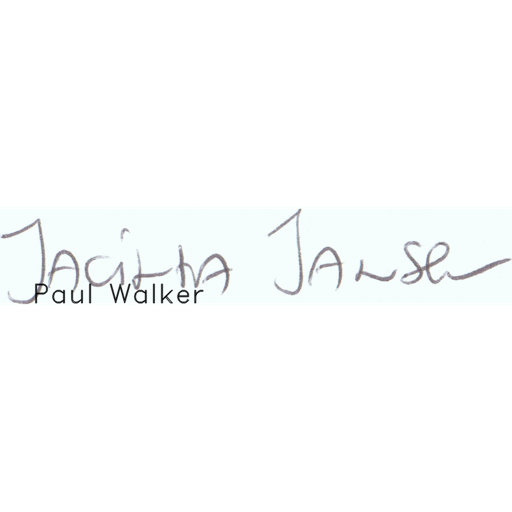 Jacinta Jansen
Paul Walker